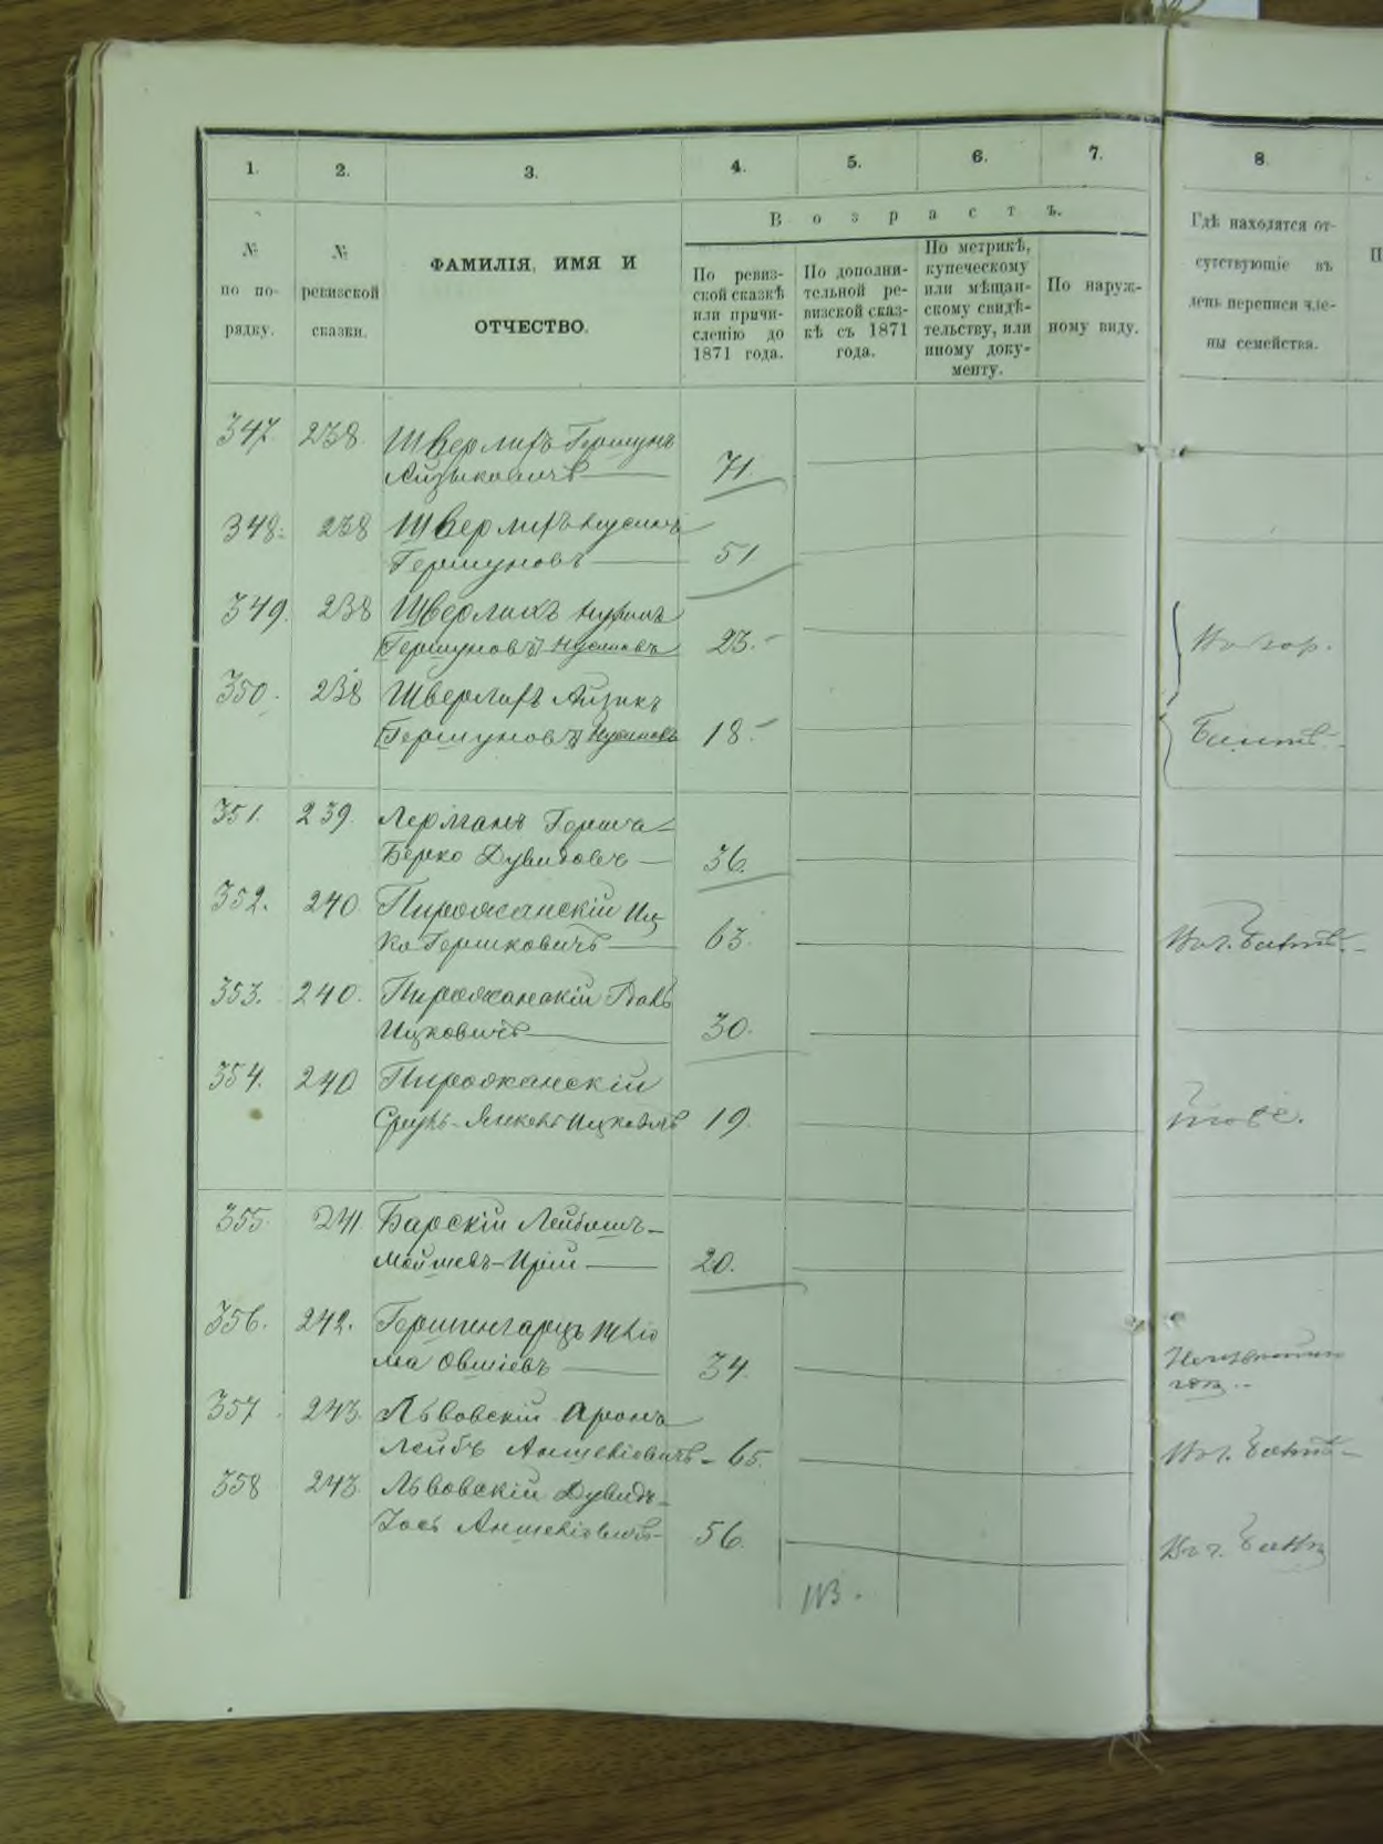 1. 2. 3. 4. 5. 6. 7. 8.
В о з р а с т ъ.
№ по по- рядку.
№ ревизской сказки.
ФАМИЛІЯ, ИМЯ И
ОТЧЕСТВО.
По ревиз-
ской сказкѣ
или причи-
сленію до
1871 года.
По дополни-
тельной ре-
визской сказ-
кѣ съ 1871
года.
По метрикѣ,
купеческому
или мѣщан-
скому свидѣ-
тельству, или
иному доку-
менту.
По наруж-
ному виду.
Гдѣ находятся от-
сутствующіе въ
день переписи чле-
ны семейства.
347. 238. Шверликъ Гершунъ
Айзыковичъ 71.
348. 238 Шверликъ Нусинъ
Гершуновъ 51
349. 238 Шверликъ
Гершуновъ Нусиновъ 23.
350. 238 Шверликъ Айзикъ
Гершуновъ Нусиновъ 18.
Балтѣ.
351. 239. Лерманъ Гершъ
Берко Дувидовъ 36.
352. 240. Пирожанскій Иц
ко Гершковичъ 63. Въ г. Балтѣ.
353. 240. Пирожанскій
Ицковичъ 30.
354. 240 Пирожанскій
Сруль-Янкель Ицковичъ 19. тоже.
355. 241 Барскій Лейбишъ-
Мойшевъ- 20.
356. 242. Шлio
ма Овшіевъ 34.
357. 243. Львовскій Аронъ
Лейбъ Аншеліовичъ- 65. Въ г. Балтѣ-
358 243. Львовскій Дувидъ-
Іось Аншеліовичъ 56. Въ г.